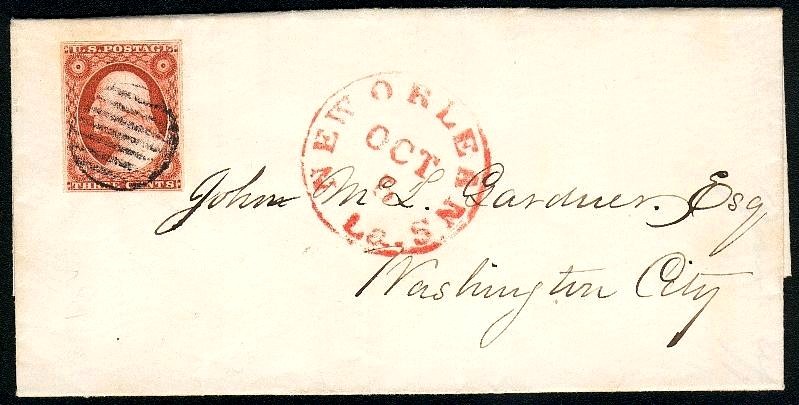 U.S. POSTAGE
THREE CENTS
NEW ORLEANS
OCT
La.
John M. L. Gardner. Esq
Washington City